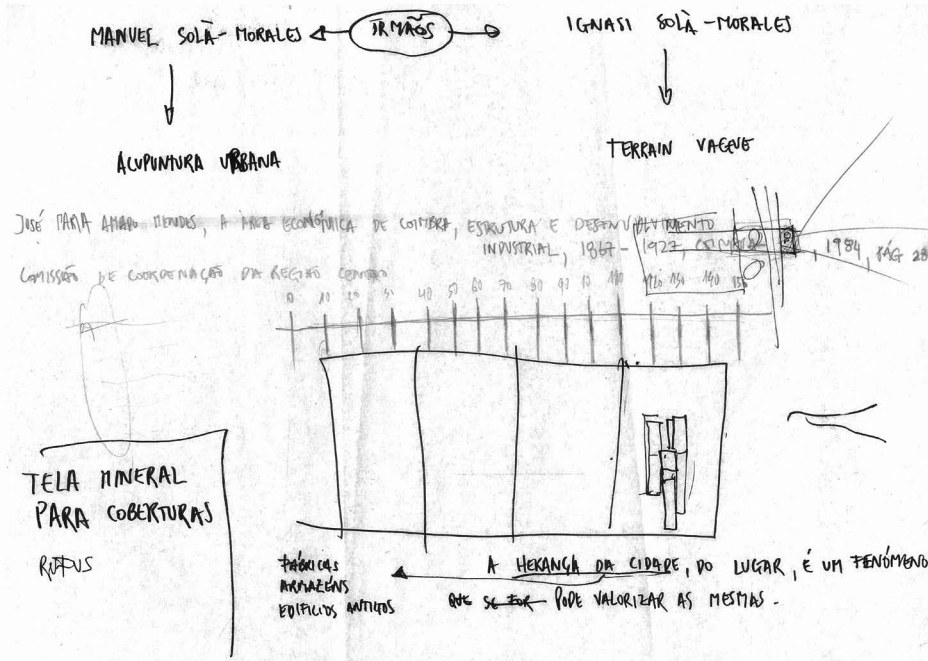 MANUEL SOLÀ-MORALES
IRMÃOS
IGNASI SOLÀ-MORALES
ACUPUNTURA URBANA
TERRAIN VAGUE
JOSÉ MARIA AMARO MENDES, A ÁREA ECONÓMICA DE COIMBRA, ESTRUTURA E DESENVOLVIMENTO
INDUSTRIAL, 1867-1927, COIMBRA, 1984, PÁG 28
COMISSÃO DE COORDENAÇÃO DA REGIÃO CENTRO
0 10 20 30 40 50 60 70 80 90 120 130 140 150
TELA MINERAL
PARA COBERTURAS
RUFUS
FÁBRICAS
ARMAZÉNS
EDIFICIOS ANTIGOS
A HERANÇA DA CIDADE, DO LUGAR, É UM FENÓMENO
QUE SE FOR PODE VALORIZAR AS MESMAS.